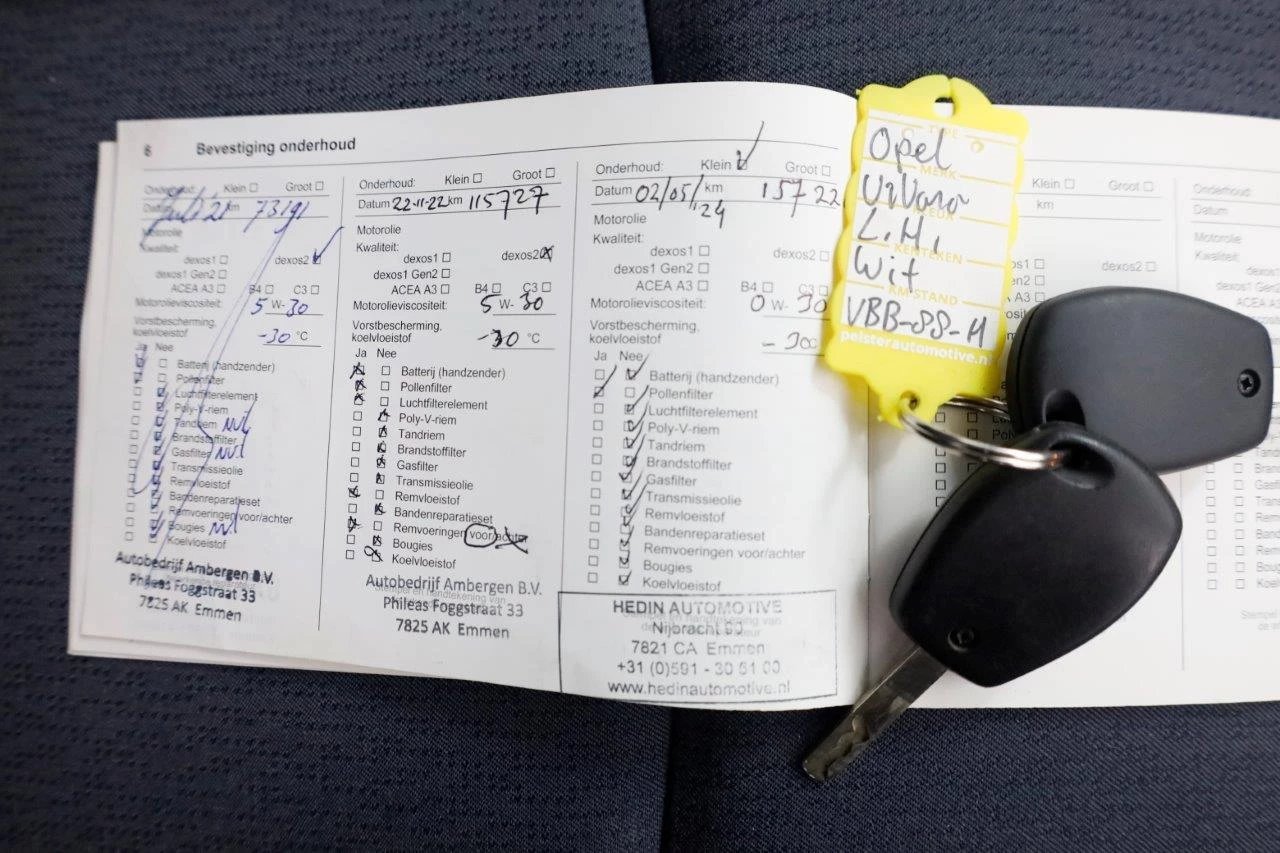 6 Bevestiging onderhoud
Klein Groot
Juli 21 km 73191
Motorolie
Kwaliteit:
dexos1 dexos2
dexos1 Gen2
ACEA A3 B4 C3
Motorolieviscositeit: 5 W-30
Vorstbescherming,
koelvloeistof -30 °C
Ja Nee
Batterij (handzender)
Pollenfilter
Luchtfilterelement
Poly-V-riem
Tandriem nvt
Brandstoffilter
Gasfilter nvt
Transmissieolie
Remvloeistof
Bandenreparatieset
Remvoeringen voor/achter
Bougies nvt
Koelvloeistof
Autobedrijf Ambergen B.V.
Phileas Foggstraat 33
7825 AK Emmen
Onderhoud: Klein Groot
Datum 22-11-22 km 115727
Motorolie
Kwaliteit:
dexos1 dexos2
dexos1 Gen2
ACEA A3 B4 C3
Motorolieviscositeit: 5 W- 30
Vorstbescherming,
koelvloeistof -30 °C
Ja Nee
Batterij (handzender)
Pollenfilter
Luchtfilterelement
Poly-V-riem
Tandriem
Brandstoffilter
Gasfilter
Transmissieolie
Remvloeistof
Bandenreparatieset
Remvoeringen voor/achter
Bougies
Koelvloeistof
Autobedrijf Ambergen B.V.
Phileas Foggstraat 33
7825 AK Emmen
Onderhoud: Klein Groot
Datum 02/05/'24 km 15722
Motorolie
Kwaliteit:
dexos1 dexos2
dexos1 Gen2
ACEA A3 B4 C3
Motorolieviscositeit: 0 W- 30
Vorstbescherming,
koelvloeistof
Ja Nee
Batterij (handzender)
Pollenfilter
Luchtfilterelement
Poly-V-riem
Tandriem
Brandstoffilter
Gasfilter
Transmissieolie
Remvloeistof
Bandenreparatieset
Remvoeringen voor/achter
Bougies
Koelvloeistof
HEDIN AUTOMOTIVE
7821 CA Emmen
www.hedinautomotive.nl
TYPE
Opel
MERK
Vivaro
L.H.
KENTEKEN
Wit
KM STAND
VBB-88-H
pelsterautomotive.nl
Klein Groot
km
dexos2
Onderhoud:
Datum
Motorolie
Kwaliteit: